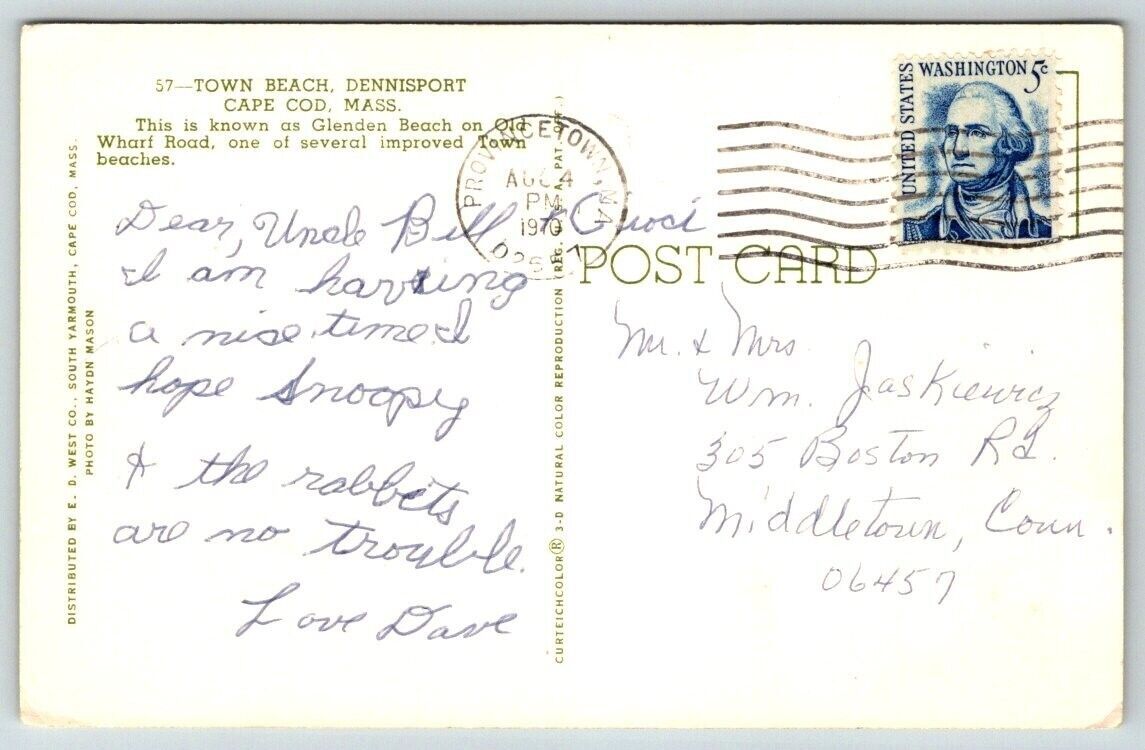 57—TOWN BEACH, DENNISPORT
CAPE COD, MASS.
This is known as Glenden Beach on Old
Wharf Road, one of several improved Town
beaches.
Dear, Uncle Bill &
I am having
a nise time I
hope Snoopy
& the rabbits
are no trouble.
Love Dave
DISTRIBUTED BY E. D. WEST CO., SOUTH YARMOUTH, CAPE COD, MASS.
PHOTO BY HAYDN MASON
CURTEICHCOLOR® 3-D NATURAL COLOR REPRODUCTION (REG. U.S.A. PAT.
PROVINCETOWN, MA
AUG 4
PM
1970
UNITED STATES
WASHINGTON 5c
POST CARD
Mr. & Mrs
Wm. Jaskiewicz
305 Boston Rd.
Middletown, Conn.
06457